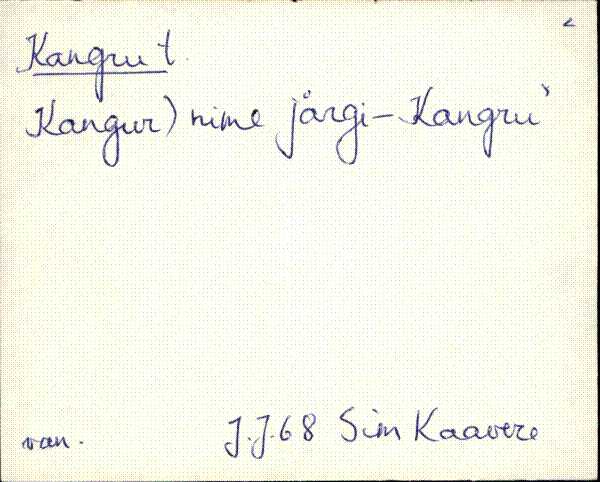 Kangru t.
Kangur) nime järgi – Kangru`
van. J.J. 68 Sim Kaavere